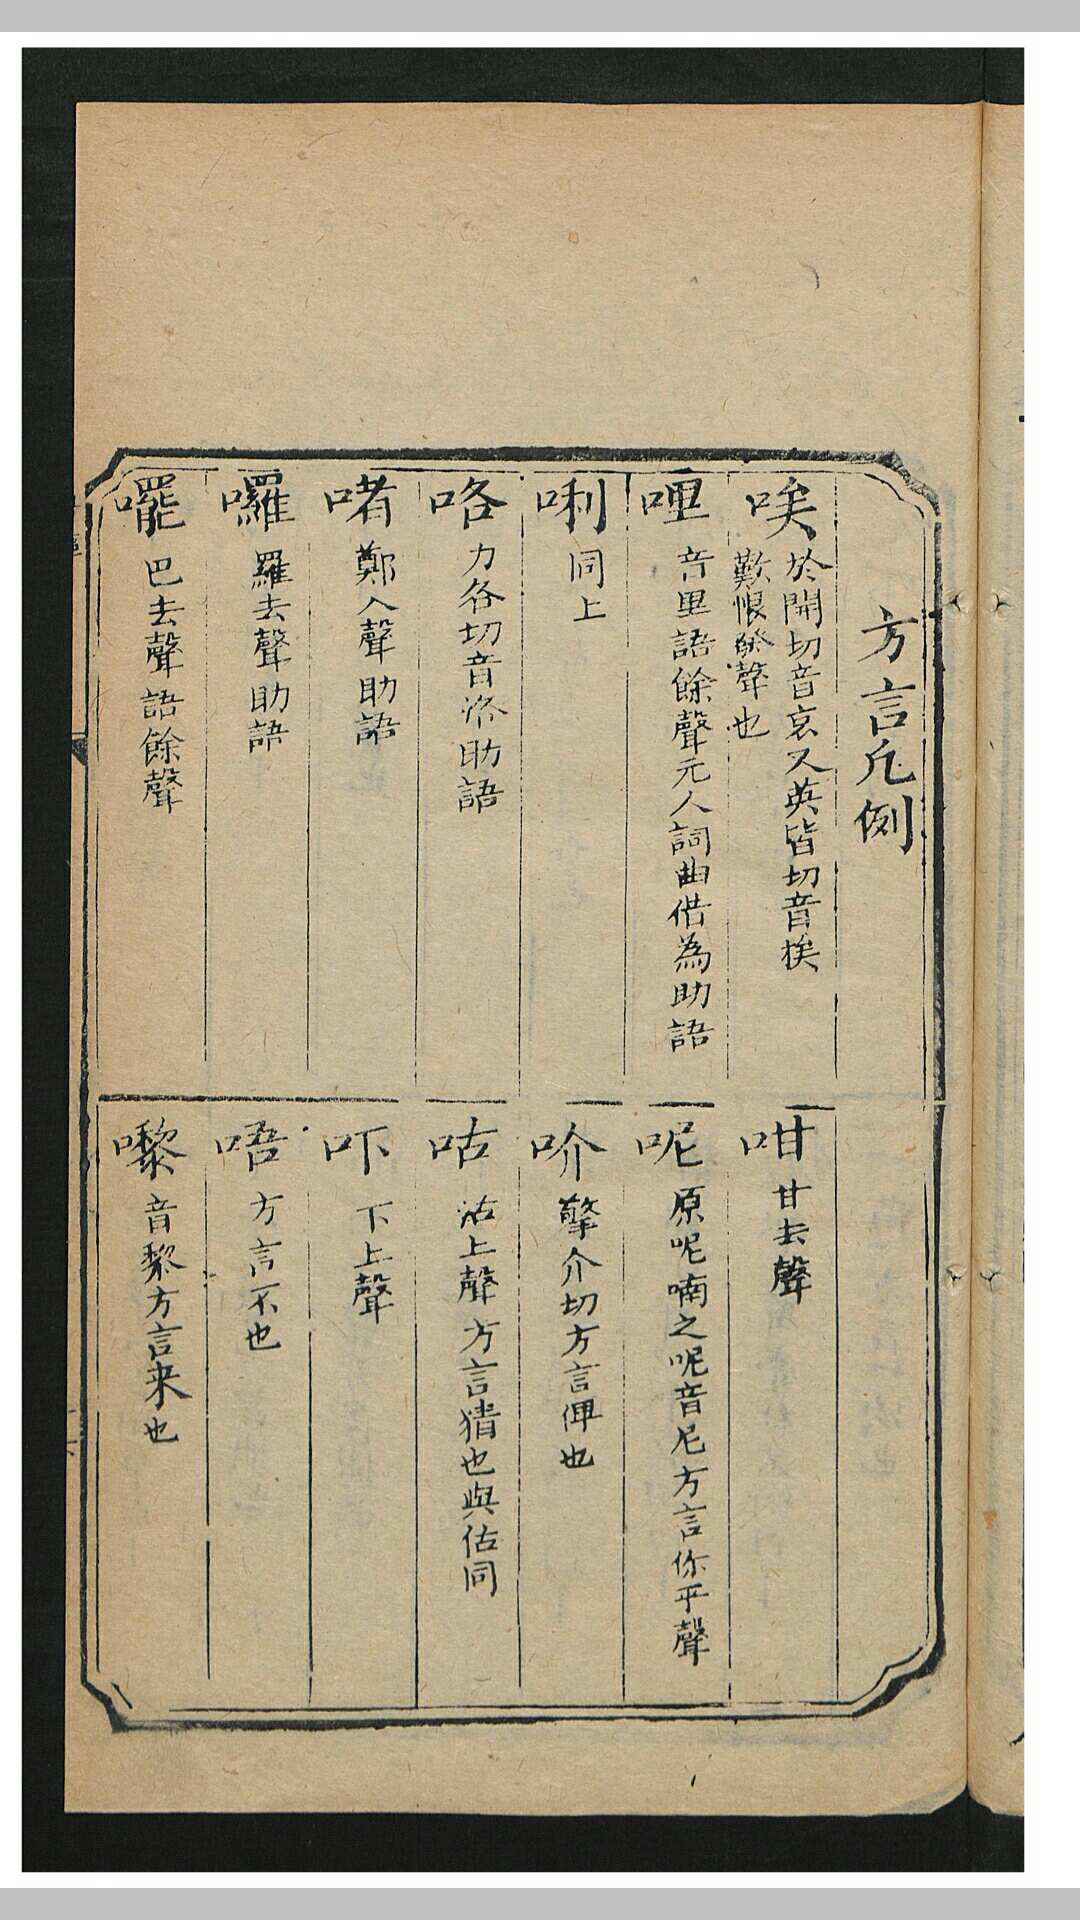 方言凡例
唉 於開切音哀又英皆切音挨
歎恨發聲也
哩 音里語餘聲元人詞曲借為助語
唎 同上
咯 力各切音洛助語
啫 鄭入聲助語
囉 羅去聲助語
嚁 巴去聲語餘聲
咁 甘去聲
呢 原呢喃之呢音尼方言你平聲
吤 擎介切方言俾也
咕 沽上聲方言猜也與估同
吓 下上聲
唔 方言不也
嚟 音黎方言来也